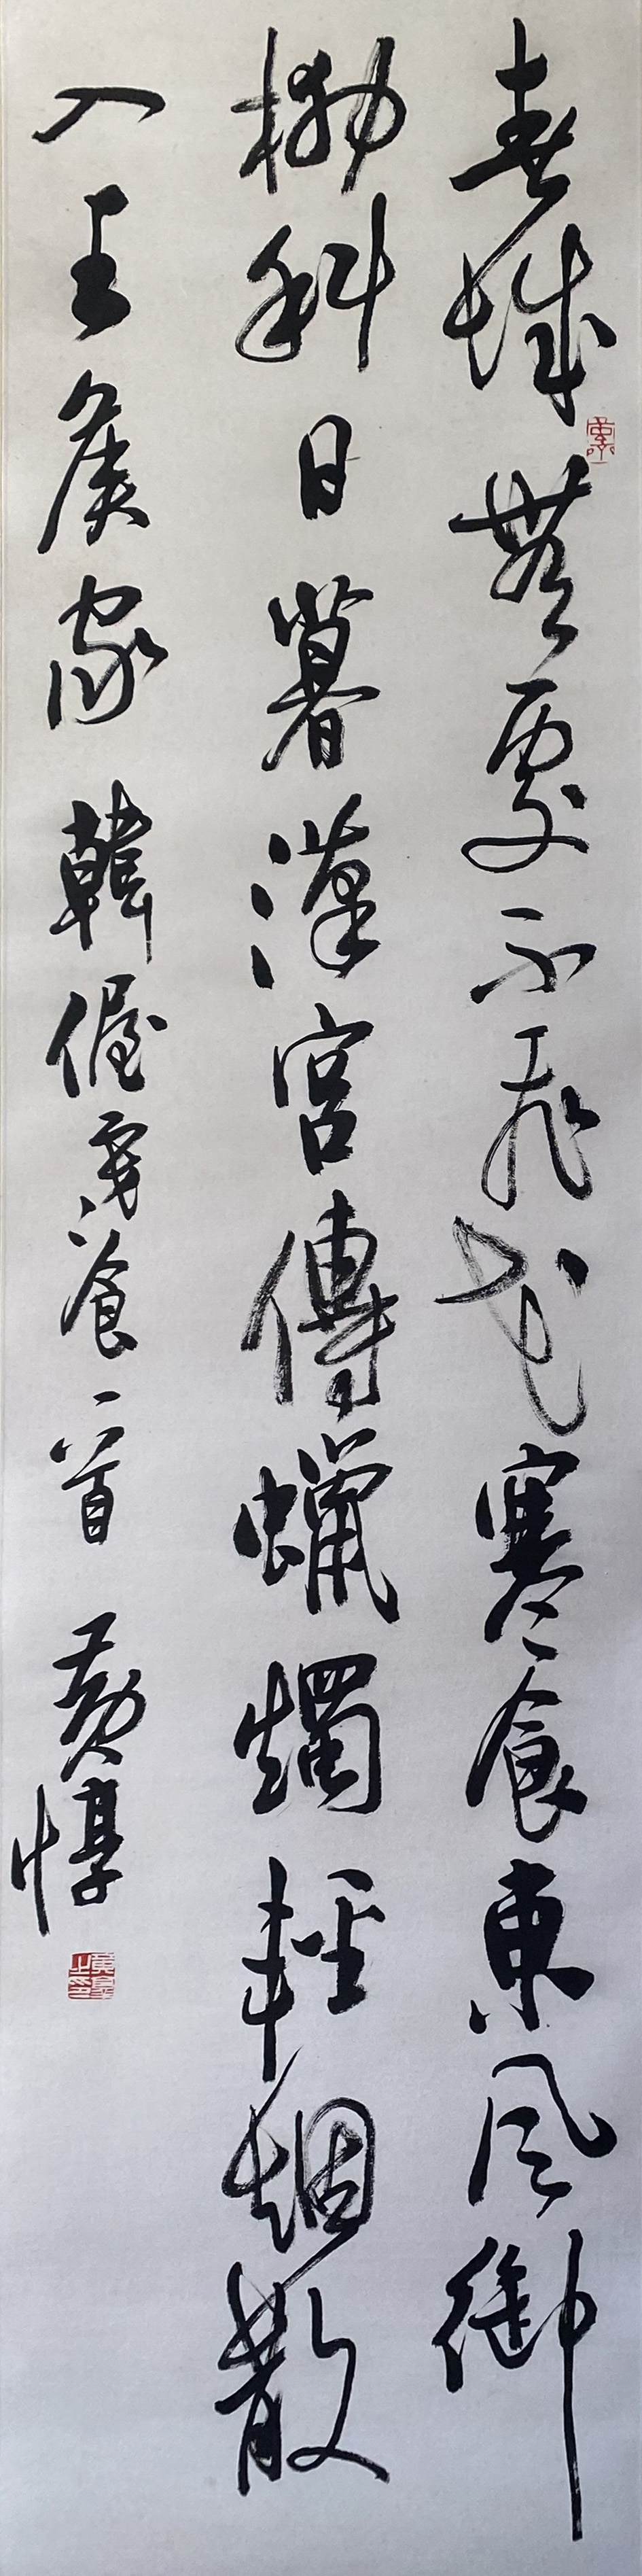 春城無處不飛花寒食東風御
柳斜日暮漢宮傳蠟燭輕烟散
入五侯家 韓偓寒食一首 黃惇
黃惇之印